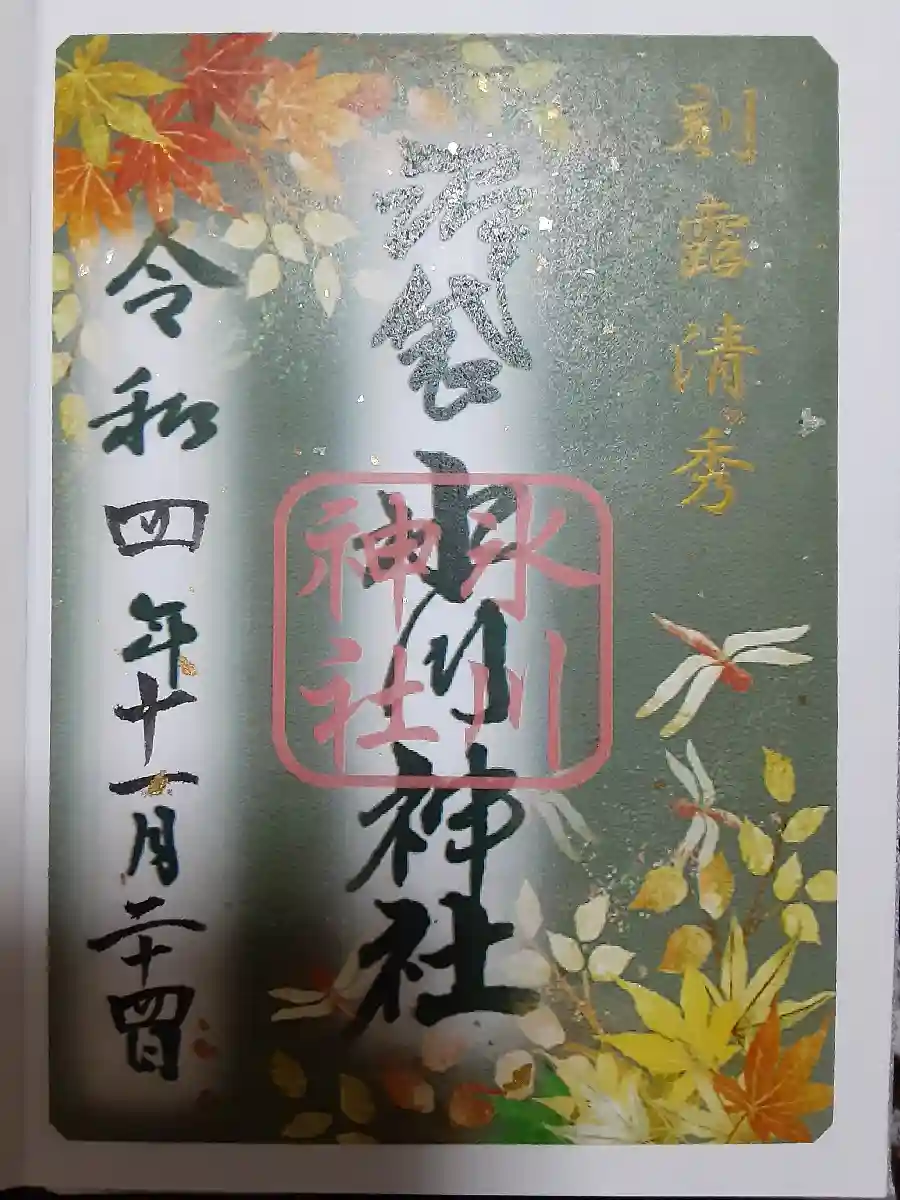 刻露清秀
沼袋氷川神社
氷川
神社
令和四年十一月二十四日